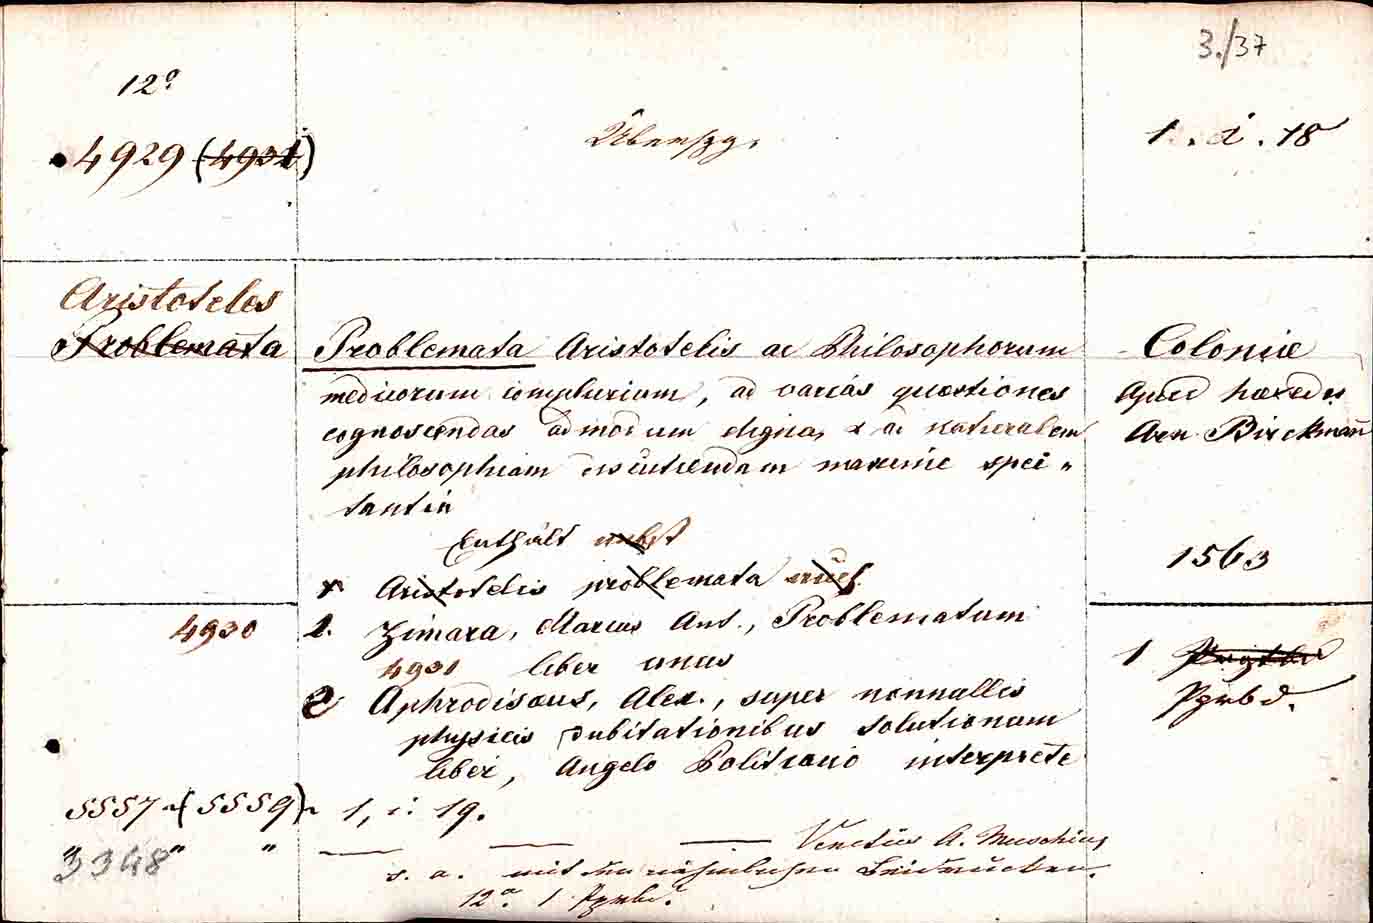 3./37
12°
Überszg.
1. i. 18
4929 (4931)
Aristoteles
Problemata
Problemata Aristotelis ac Philosophorum
medicorum complurium, ad varias quaestiones
cognoscendas admodum digna, & ad naturalem
philosophiam discutiendam maxime spec-
tantia
Coloniæ
Apud haeredes
Arn. Birckmañ
1563
Enthält nebst
1. Aristotelis problemata
4930
1. Zimara, Marcus Ant., Problematum
4931 liber unus
2 Aphrodisaeus, Alex., super nonnullis
physicis dubitationibus solutionum
liber, Angelo Politiano interprete
1
Pgmbd.
5557 (5559) 1, i. 19.
" " "
3348
— — — Venetiis A. Muschius
s. a. mit den nähmlichen Beidrucken.
12° 1 Pgmbd.